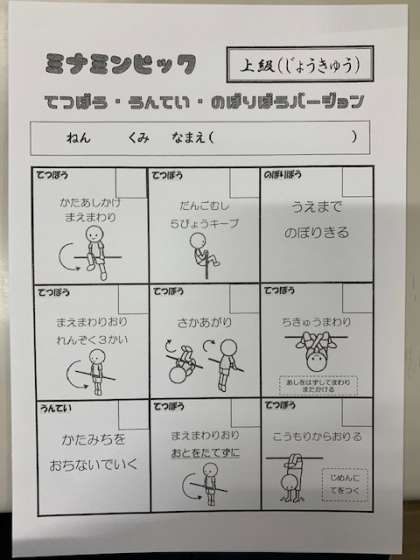 ミナミンピック
上級(じょうきゅう)
てつぼう・うんてい・のぼりぼうバージョン
ねん くみ なまえ( )
てつぼう
かたあしかけ
まえまわり
てつぼう
だんごむし
5びょうキープ
のぼりぼう
うえまで
のぼりきる
てつぼう
まえまわりおり
れんぞく3かい
てつぼう
さかあがり
てつぼう
ちきゅうまわり
あしをはずしてまわり
またかける
うんてい
かたみちを
おちないでいく
てつぼう
まえまわりおり
おとをたてずに
てつぼう
こうもりからおりる
じめんに
てをつく